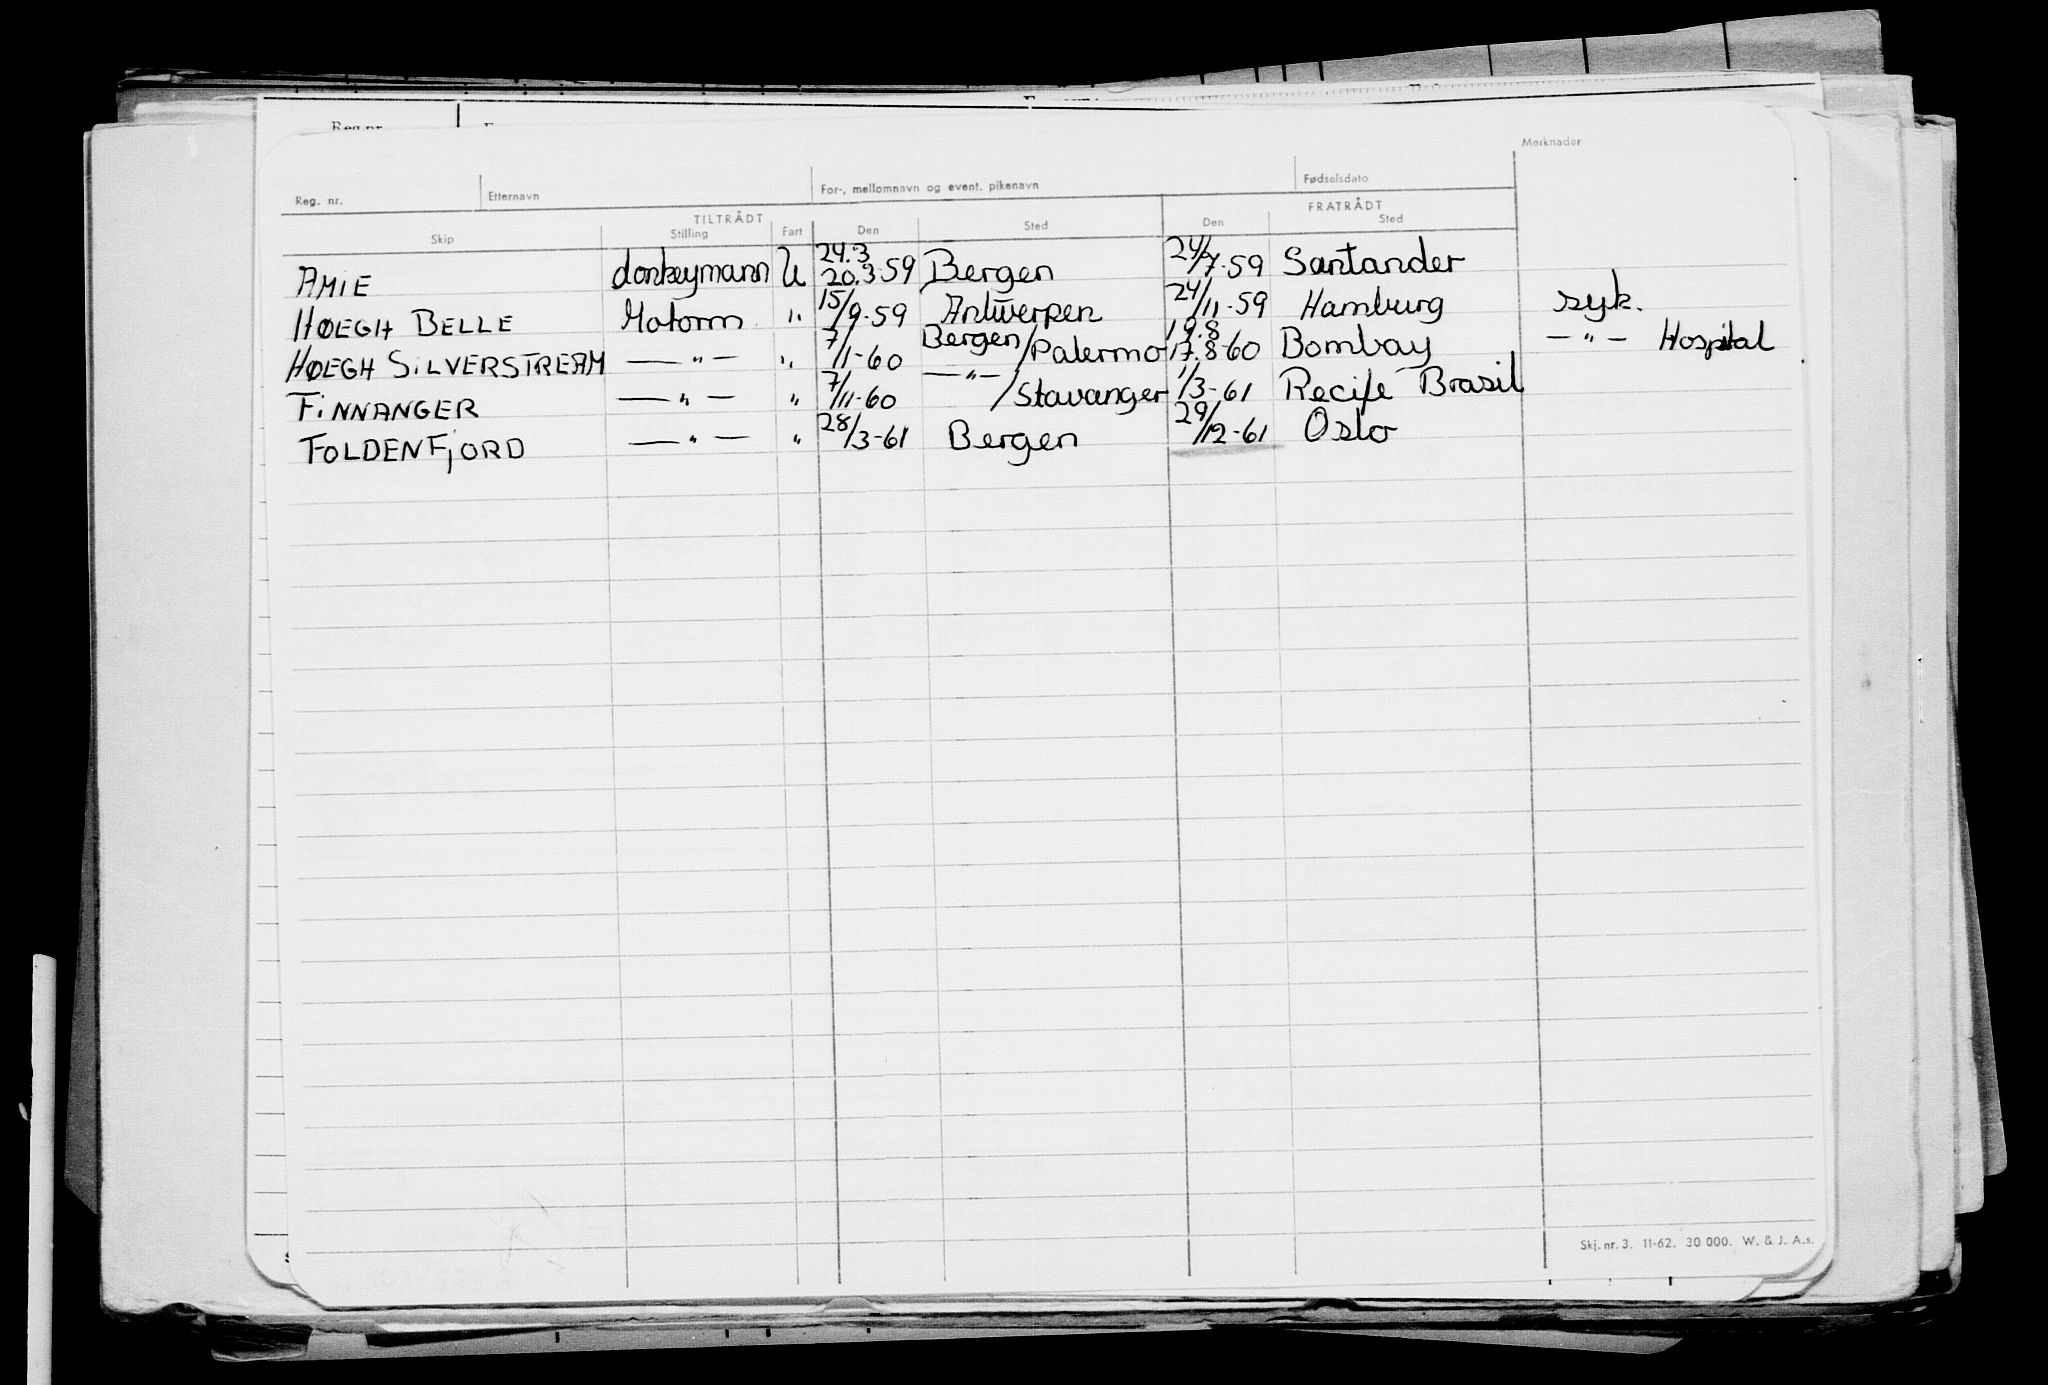 Reg. nr.
Merknader
Reg. nr. Etternavn For-, mellomnavn og event. pikenavn Fødselsdato
TILTRÅDT FRATRÅDT
Skip Stilling Fart Den Sted Den Sted
AMIE donkeymann U 24.3 20.3.59 Bergen 24/7-59 Santander
HØEGH BELLE Motorm " 15/9-59 Antwerpen 24/11-59 Hamburg syk.
HØEGH SILVERSTREAM — " — " 7/1-60 Bergen/Palermo 19.8 17.8-60 Bombay — " — Hospital
FINNANGER — " — " 7/11-60 — " —/Stavanger 1/3-61 Recife Brasil
FOLDENFJORD — " — " 28/3-61 Bergen 29/12-61 Oslo
Skj. nr. 3. 11-62. 30 000. W. & J. A.s.